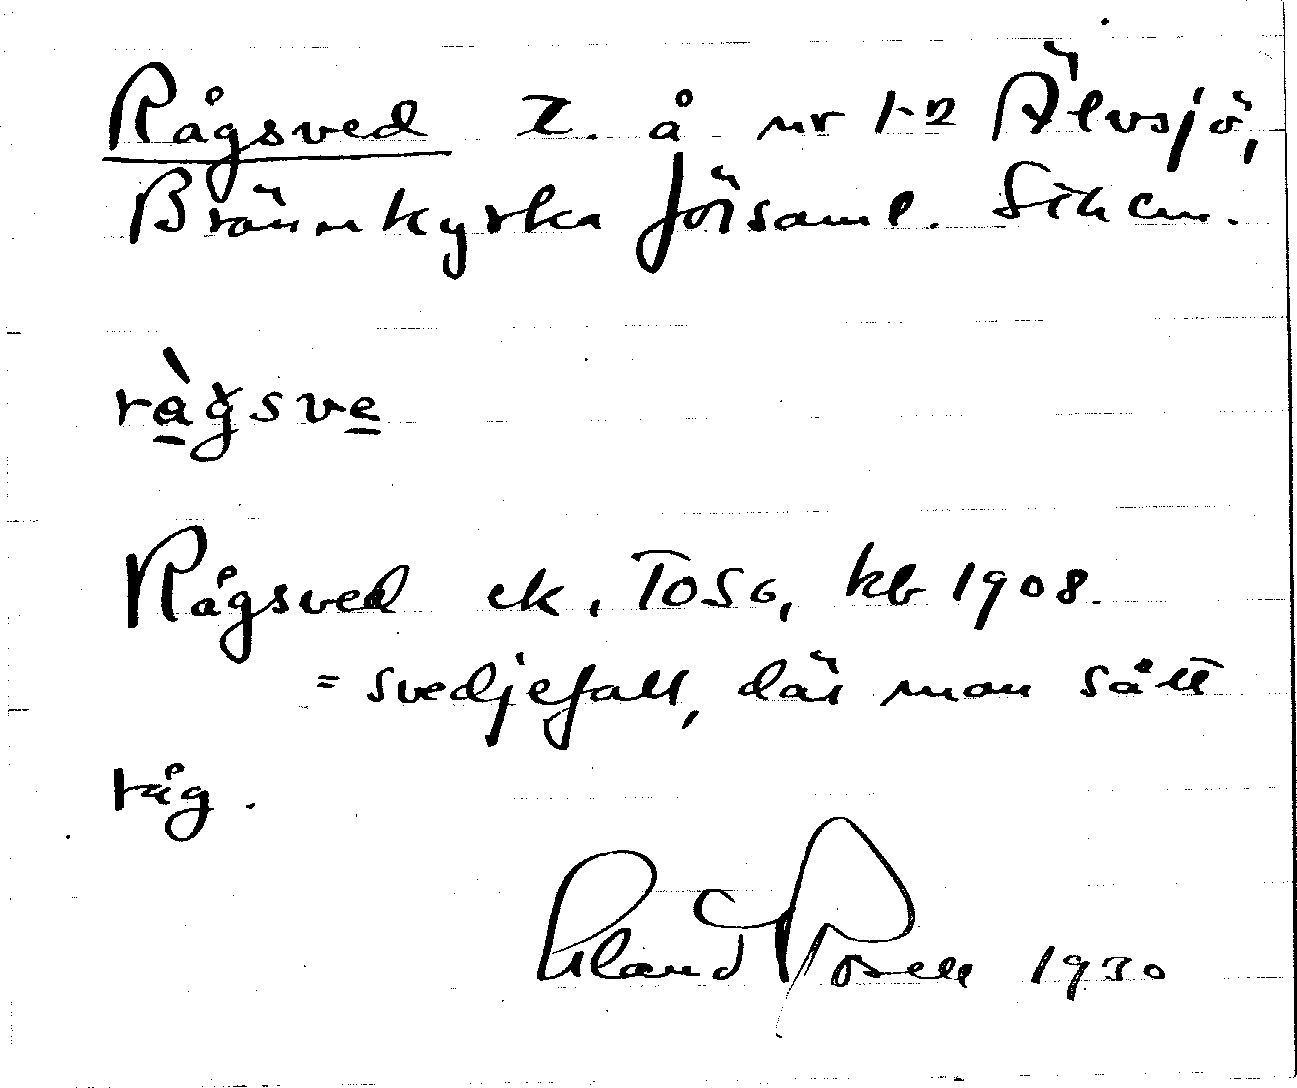 Rågsved t. å nr 1-2 Älvsjö,
Brännkyrka församl. Sthlm.
rågsve
Rågsved ek. TOSG, kb 1908.
= svedjefall, där man sått
råg.
Erland Rosell 1930